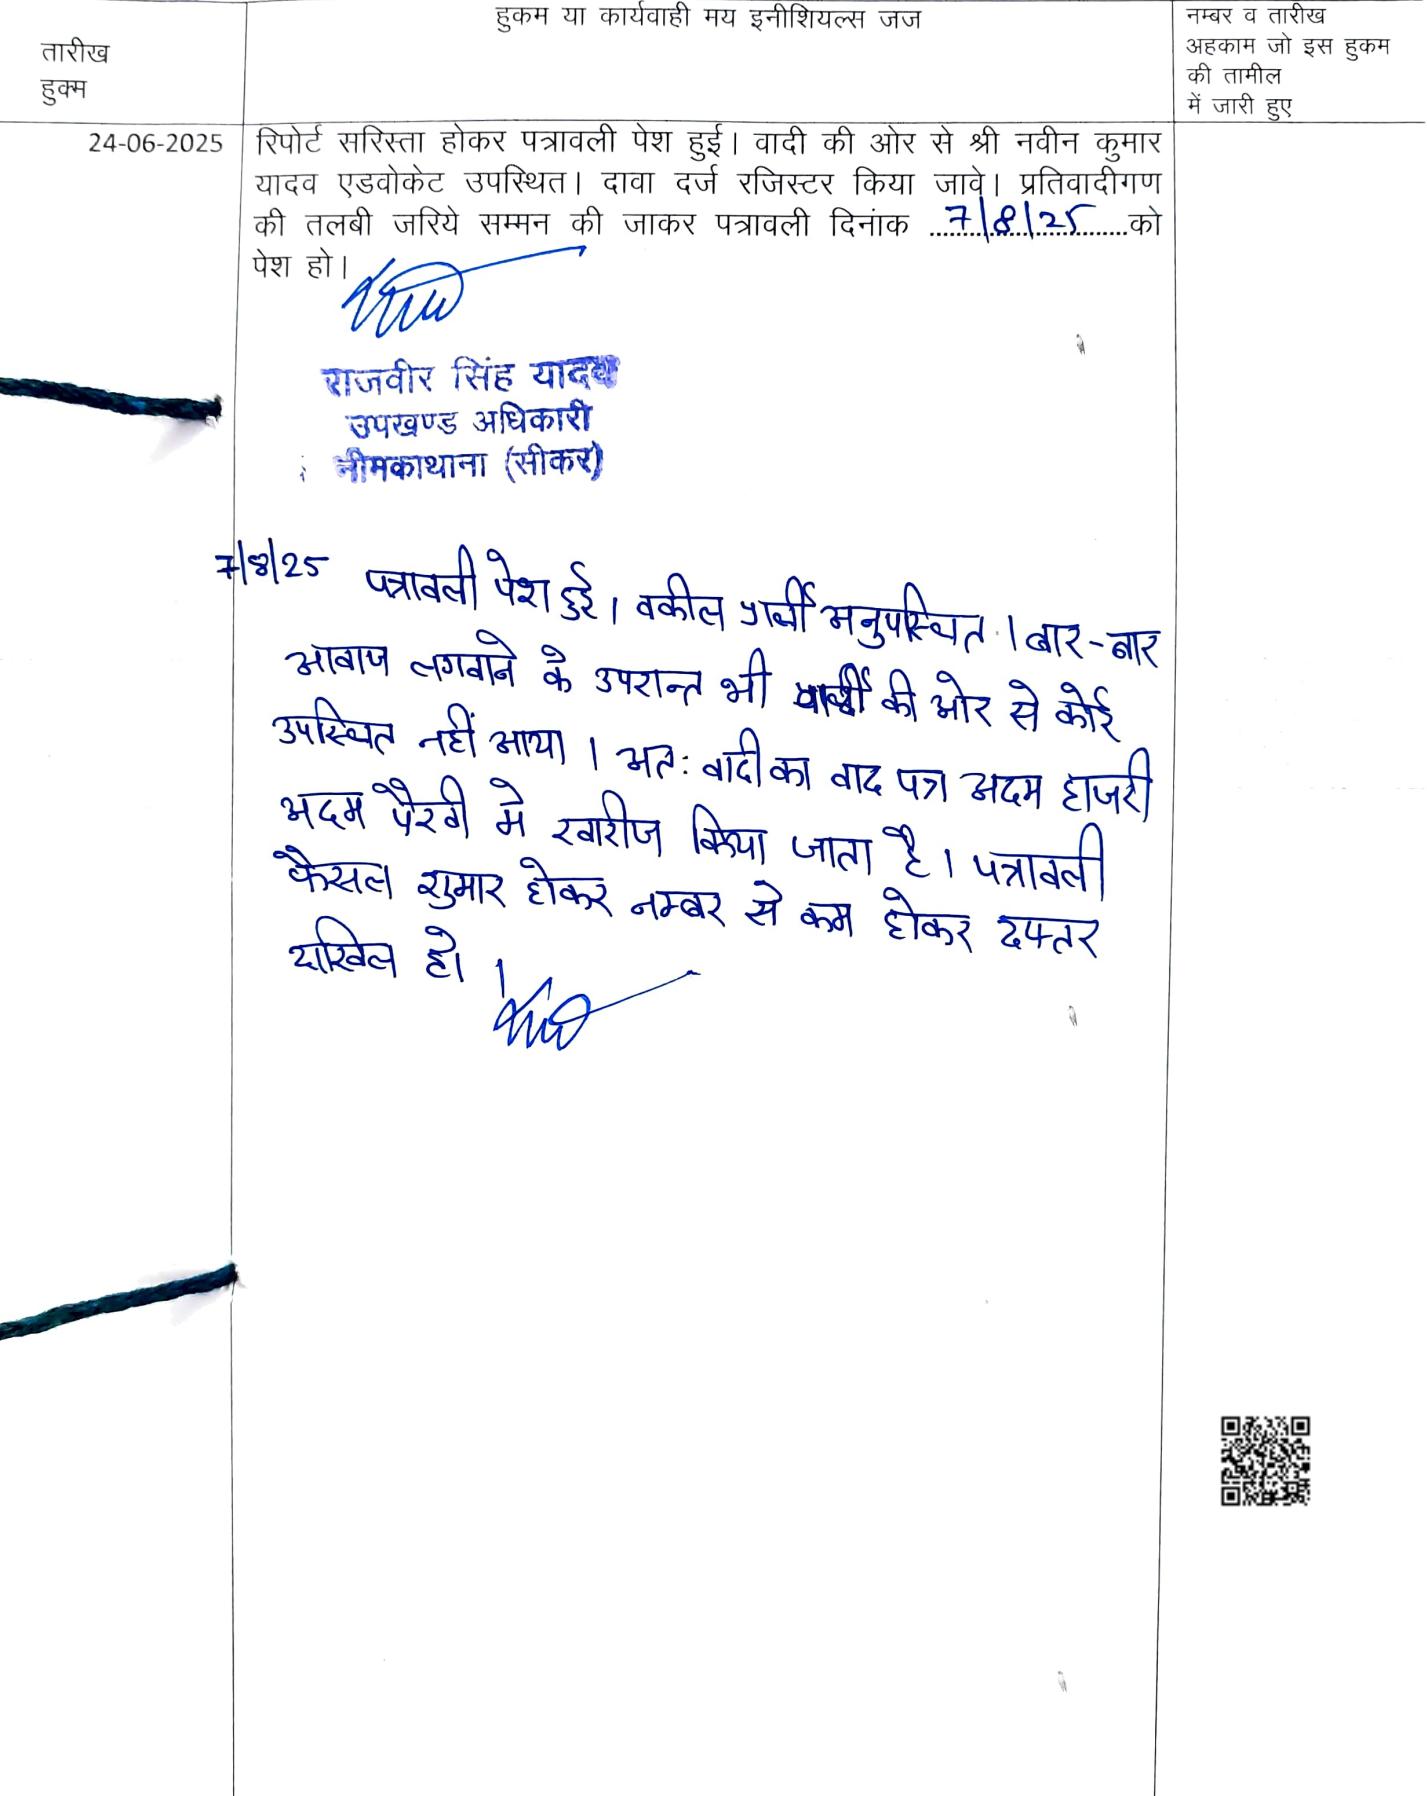 तारीख
हुक्म
हुकम या कार्यवाही मय इनीशियल्स जज
नम्बर व तारीख
अहकाम जो इस हुकम
की तामील
में जारी हुए
24-06-2025
रिपोर्ट सरिस्ता होकर पत्रावली पेश हुई। वादी की ओर से श्री नवीन कुमार
यादव एडवोकेट उपस्थित। दावा दर्ज रजिस्टर किया जावे। प्रतिवादीगण
की तलबी जरिये सम्मन की जाकर पत्रावली दिनांक 7/8/25 को
पेश हो।
राजवीर सिंह यादव
उपखण्ड अधिकारी
नीमकाथाना (सीकर)
7/8/25 पत्रावली पेश हुई। वकील प्रार्थी अनुपस्थित। बार-बार
आवाज लगवाने के उपरान्त भी की ओर से कोई
उपस्थित नहीं आया। अतः वादी का वाद पत्र अदम हाजरी
अदम पैरवी मे खारीज किया जाता है। पत्रावली
फैसल शुमार होकर नम्बर से कम होकर दफ्तर
दाखिल हो।